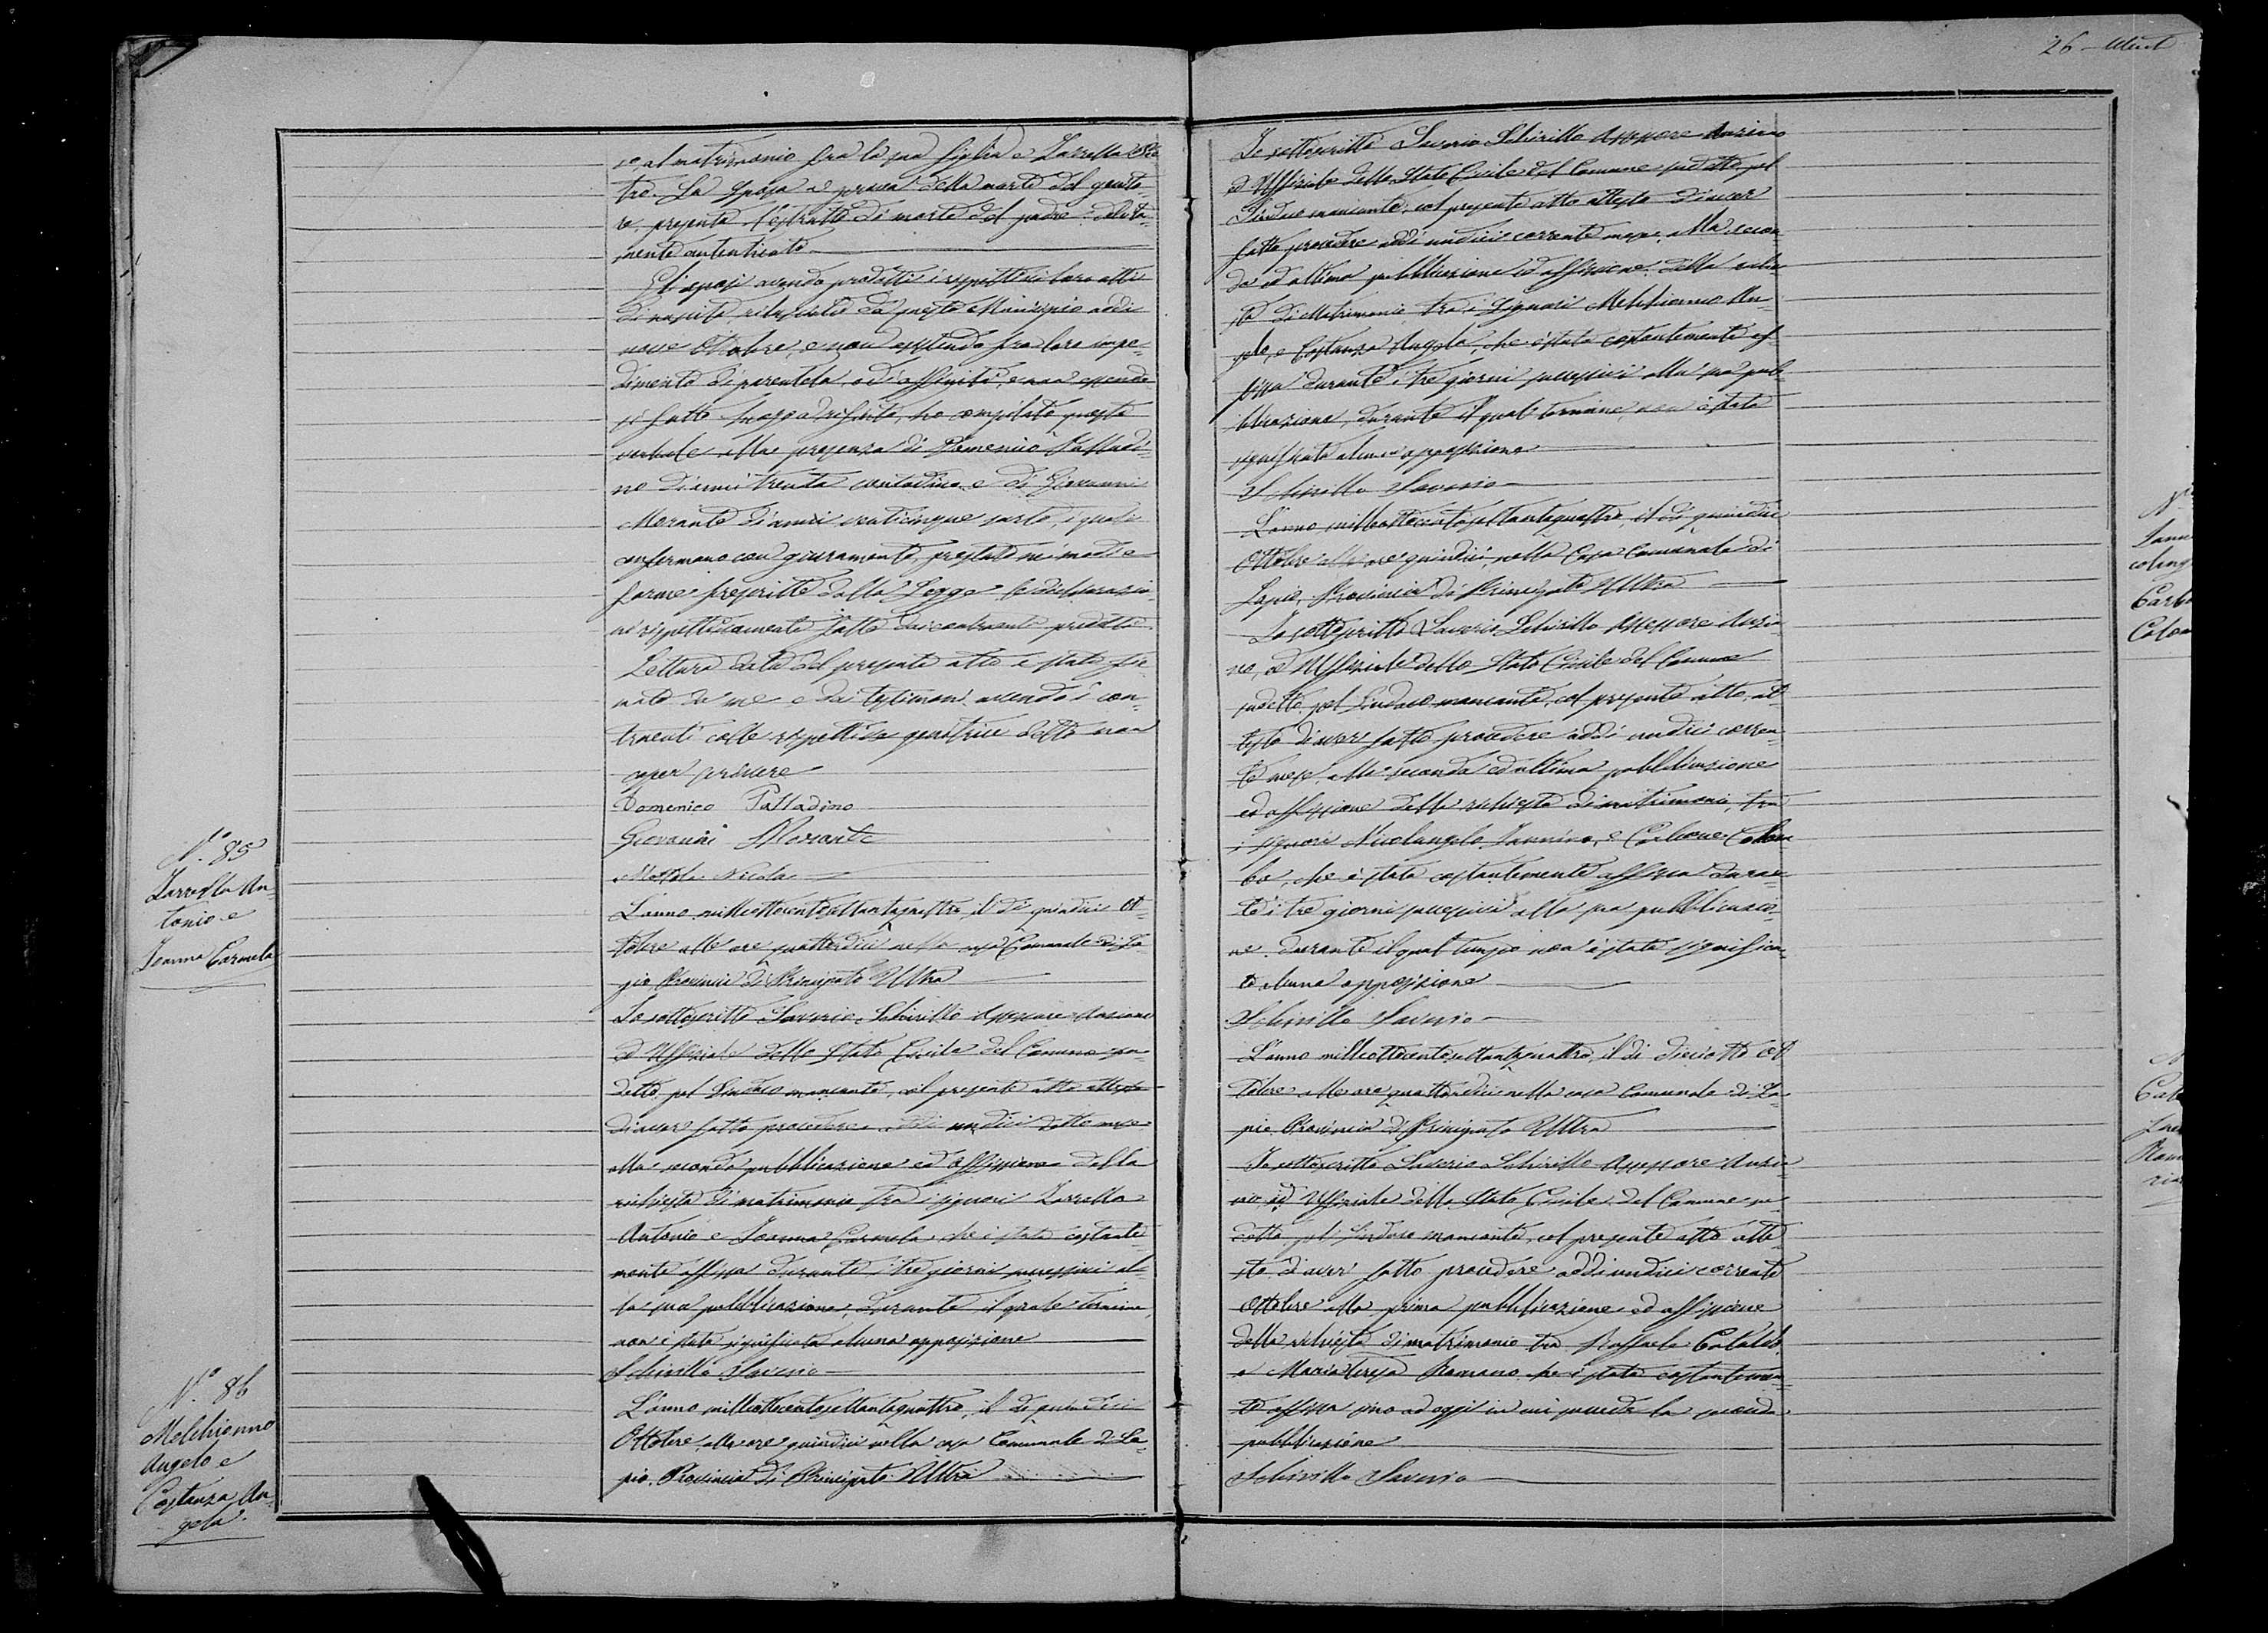 26
se al matrimonio fra la sua figlia e Zarrella
tro. La sposa a prova della morte del genito-
re, presenta l'estratto di morte del padre debita-
mente autenticato
Gli sposi avendo prodotti i rispettivi loro atti
di nascita rilasciati da questo Municipio addì
nove Ottobre, e non esistendo fra loro impe-
dimento di parentela, o di affinità, e non essendo
si fatto luogo a rifiuto, ho compilato questo
verbale alla presenza di Domenico Palladi-
no di anni trenta contadino e di Giovanni
Morante di anni venticinque sarto, i quali
confermano con giuramento prestato ne' modi e
forme prescritte dalla Legge le dichiarazio-
ni rispettivamente fatte dai contraenti predetti.
Lettura data del presente atto è stato fir-
mato da me e dai testimoni avendo i con-
traenti colle rispettive genitrici detto non
saper scrivere
Domenico Palladino
Giovanni Morante
Nicola
N.° 85
Zarrella An-
tonio e
Ioanna Carmela
L'anno milleottocentosettantaquattro, il dì quindici Ot-
tobre alle ore quattordici nella casa Comunale di La-
pio Provincia di Principato Ultra
Io sottoscritto Saverio Schirillo Assessore Anziano
ed Uffiziale dello Stato Civile del Comune su-
detto, pel Sindaco mancante, col presente atto attesto
di aver fatto procedere addì undici detto mese
alla seconda pubblicazione ed affissione della
richiesta di matrimonio tra i signori Zarrella
Antonio e Ioanna Carmela, che è stata costante-
mente affissa durante i tre giorni successivi al-
la sua pubblicazione, durante il quale termine
non è stata significata alcuna opposizione
Schirillo Saverio
N.° 86
Melchionno
Angelo e
Costanza An-
gela.
L'anno milleottocentosettantaquattro, il dì quindici
Ottobre, alle ore quindici nella casa Comunale di La-
pio. Provincia di Principato Ultra
Io sottoscritto Saverio Schirillo Assessore Anziano
ed Uffiziale dello Stato Civile del Comune sudetto, pel
Sindaco mancante, col presente atto attesto di aver
fatto procedere addì undici corrente mese, alla secon-
da ed ultima pubblicazione ed affissione della richie-
sta di Matrimonio, tra i Signori Melchionno An-
gelo, e Costanza Angela, che è stata costantemente af-
fissa durante i tre giorni successivi alla sua pub-
blicazione, durante il qual termine non è stata
significata alcuna opposizione
Schirillo Saverio
L'anno milleottocentosettantaquattro, il dì quindici
Ottobre alle ore quindici, nella Casa Comunale di
Lapio, Provincia di Principato Ultra
Io sottoscritto Saverio Schirillo Assessore Anzia-
no, ed Uffiziale dello Stato Civile del Comune
sudetto, pel Sindaco mancante, col presente atto, at-
testo di aver fatto procedere addì undici corren-
te mese, alla seconda ed ultima pubblicazione
ed affissione della richiesta di matrimonio, tra
i signori Nicolangelo Iannino, e Carbone Colom
ba, che è stata costantemente affissa duran-
te i tre giorni successivi alla sua pubblicazio-
ne, durante il qual tempo non è stata significa-
ta alcuna opposizione
Schirillo Saverio
L'anno milleottocentosettantaquattro, il dì dieciotto Ot-
tobre alle ore quattordici nella casa Comunale di La-
pio. Provincia di Principato Ultra
Io sottoscritto Saverio Schirillo Assessore Anzia-
no, ed Uffiziale dello Stato Civile del Comune su-
detto pel Sindaco mancante, col presente atto atte-
sto di aver fatto procedere addì undici corrente
Ottobre alla prima pubblicazione ed affissione
della richiesta di matrimonio tra Raffaele Cataldo,
e Mariateresa Romano che è stata costantemen-
te affissa sino ad oggi in cui procede la seconda
pubblicazione
Schirillo Saverio
N.°
Iann
colang
Carbo
Colom
Cata
Rom